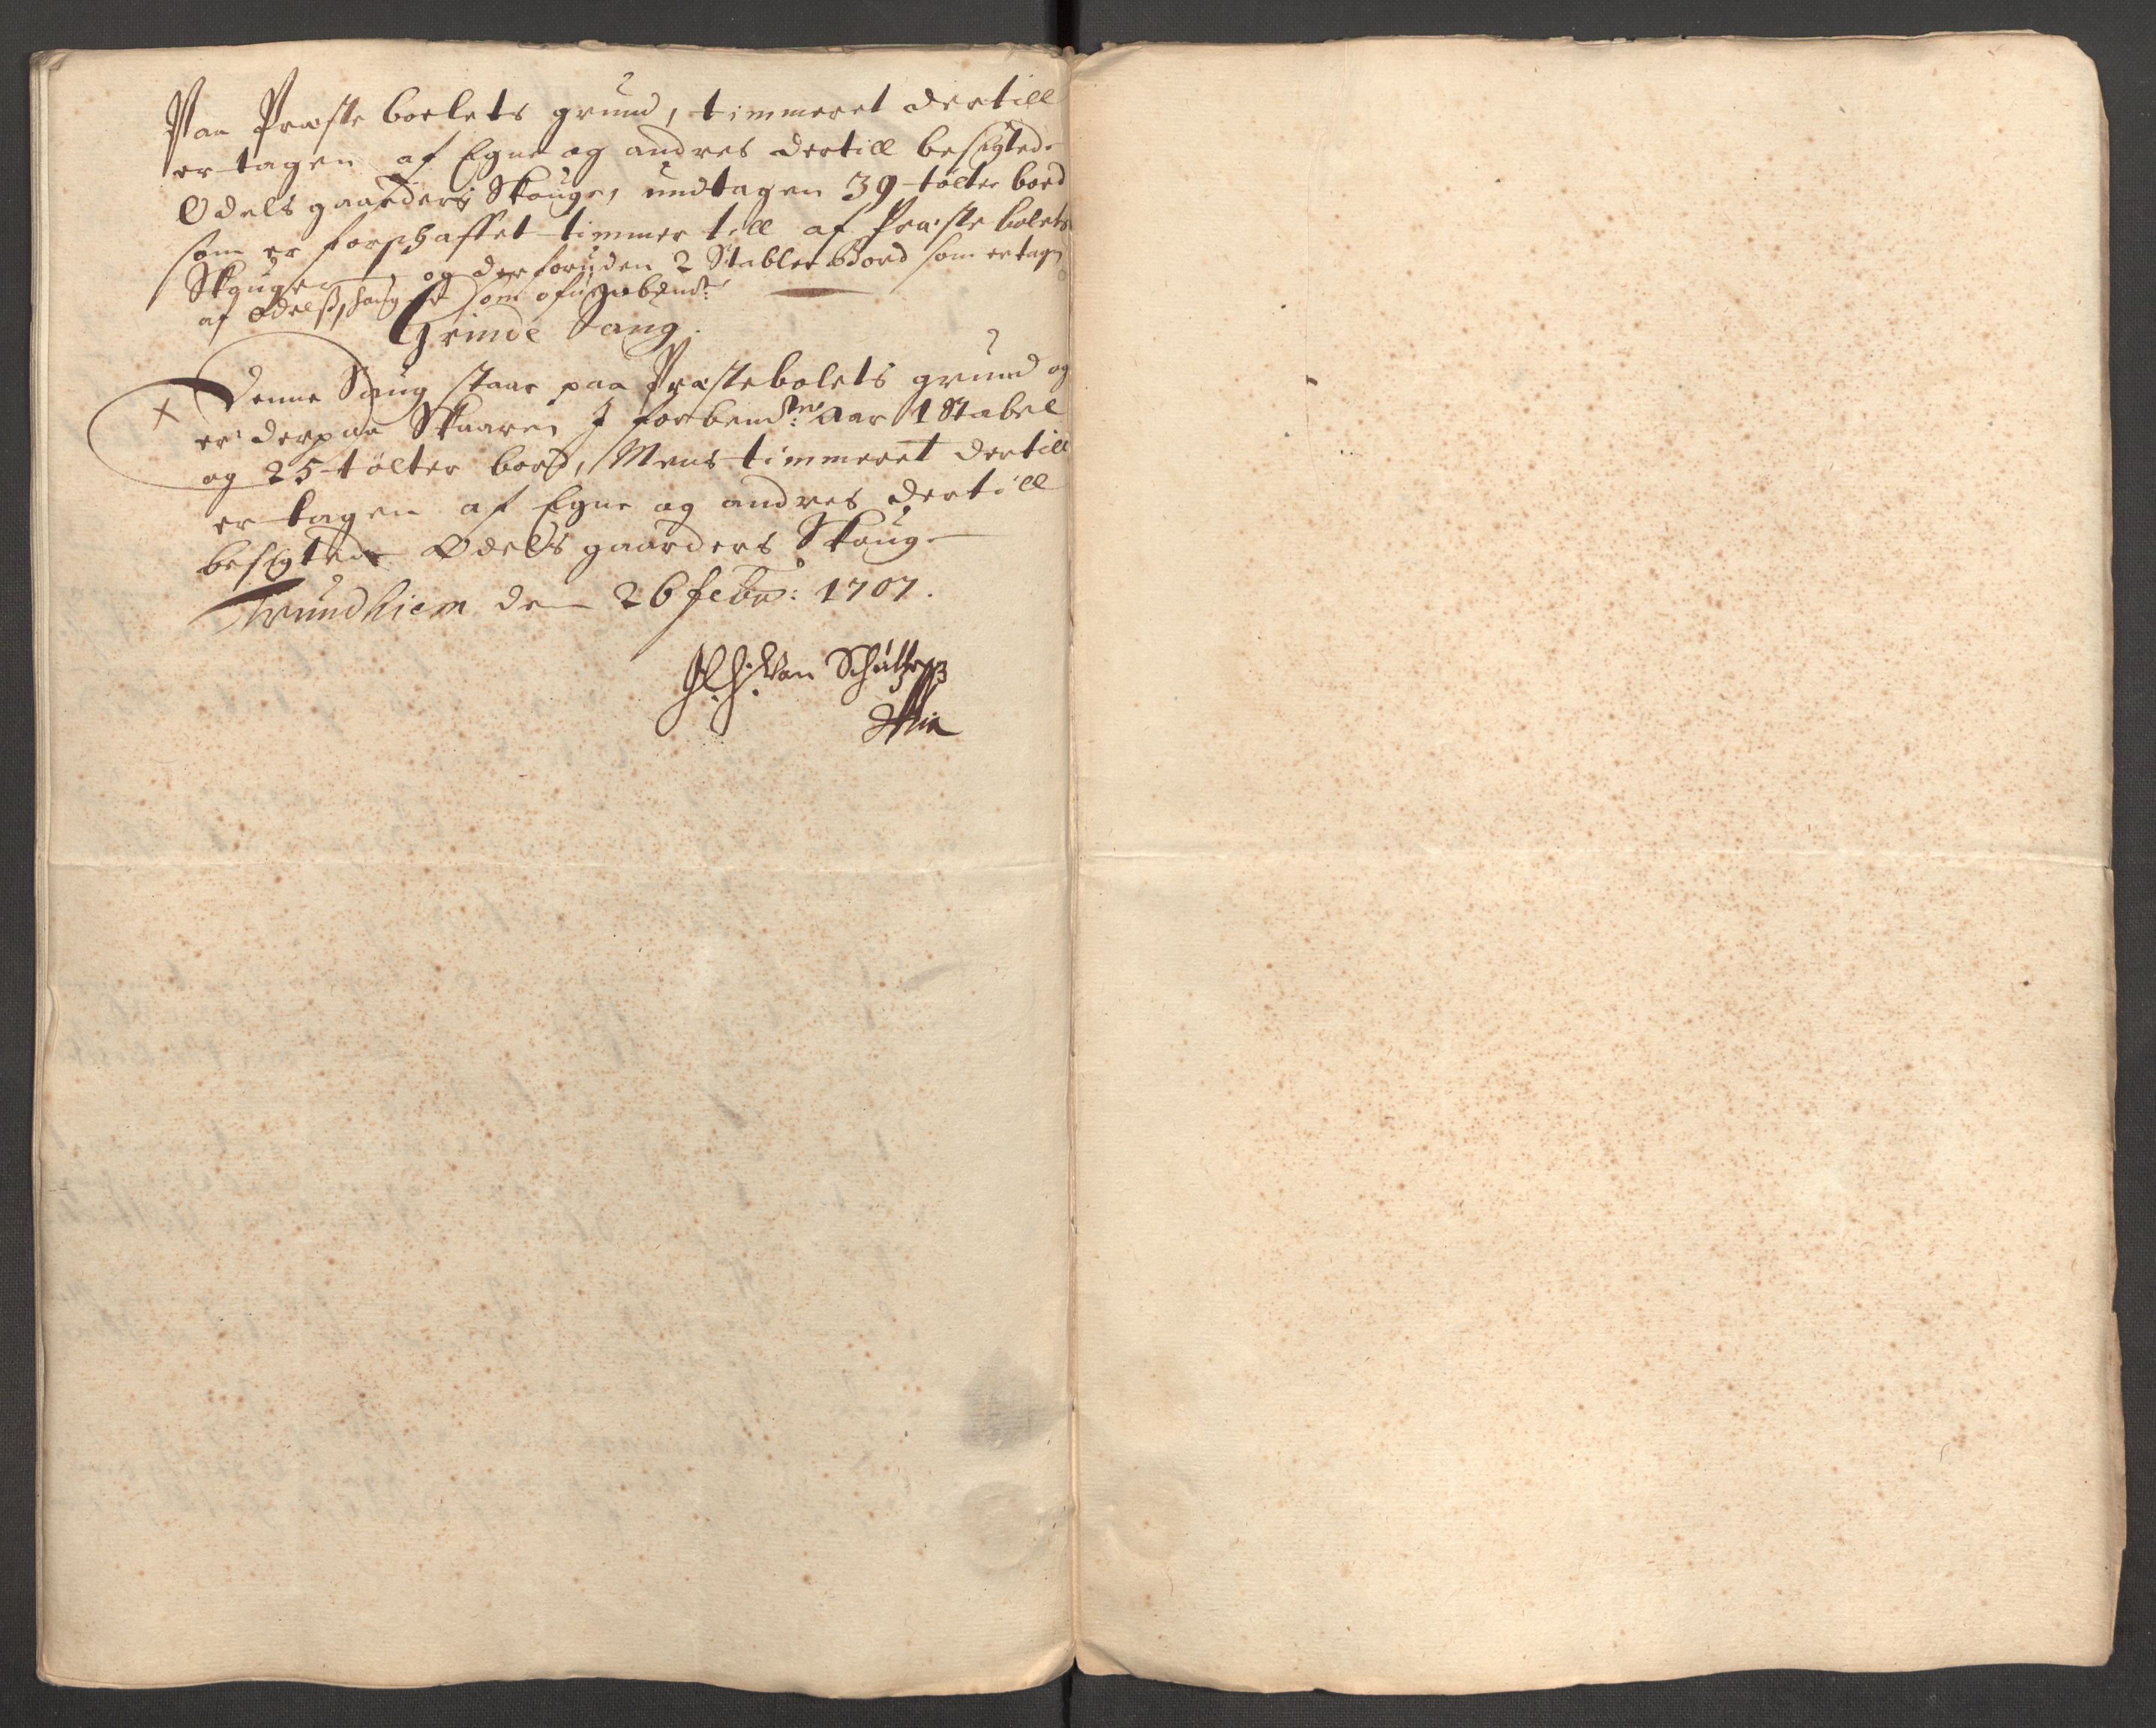 Paa Præste boelets grund, timmeret dertill
er tagen af Egne og andres dertill besigtede
Odels gaarders Skouge, undtagen 39 tølter bord
som er forschaffet timmer till af Præste bolets
Skouger og der foruden 2 Stabler Bord som er tagen
af Odelsschougene som ofuenbemt:
Grinde Saug.
Denne Saug staar paa Præstebolets grund og
er derpaa Skaaren J forbemte: Aar 1 Stabel
og 25 tølter bord, Mens timmeret dertill
er tagen af Egne og andres dertill
besigtede Odels gaarders Skouge
Trundhiem den 26 Febr: 1707.
H. H. Van Schultz